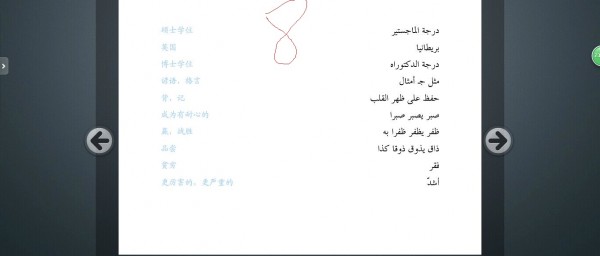 硕士学位 درجة الماجستير
英国 بريطانيا
博士学位 درجة الدكتوراه
谚语、格言 مثل جـ أمثال
背、记 حفظ على ظهر القلب
成为有耐心的 صبر يصبر صبرا
赢、战胜 ظفر يظفر ظفرا به
品尝 ذاق يذوق ذوقا كذا
贫穷 فقر
更厉害的、更严重的 أشدّ